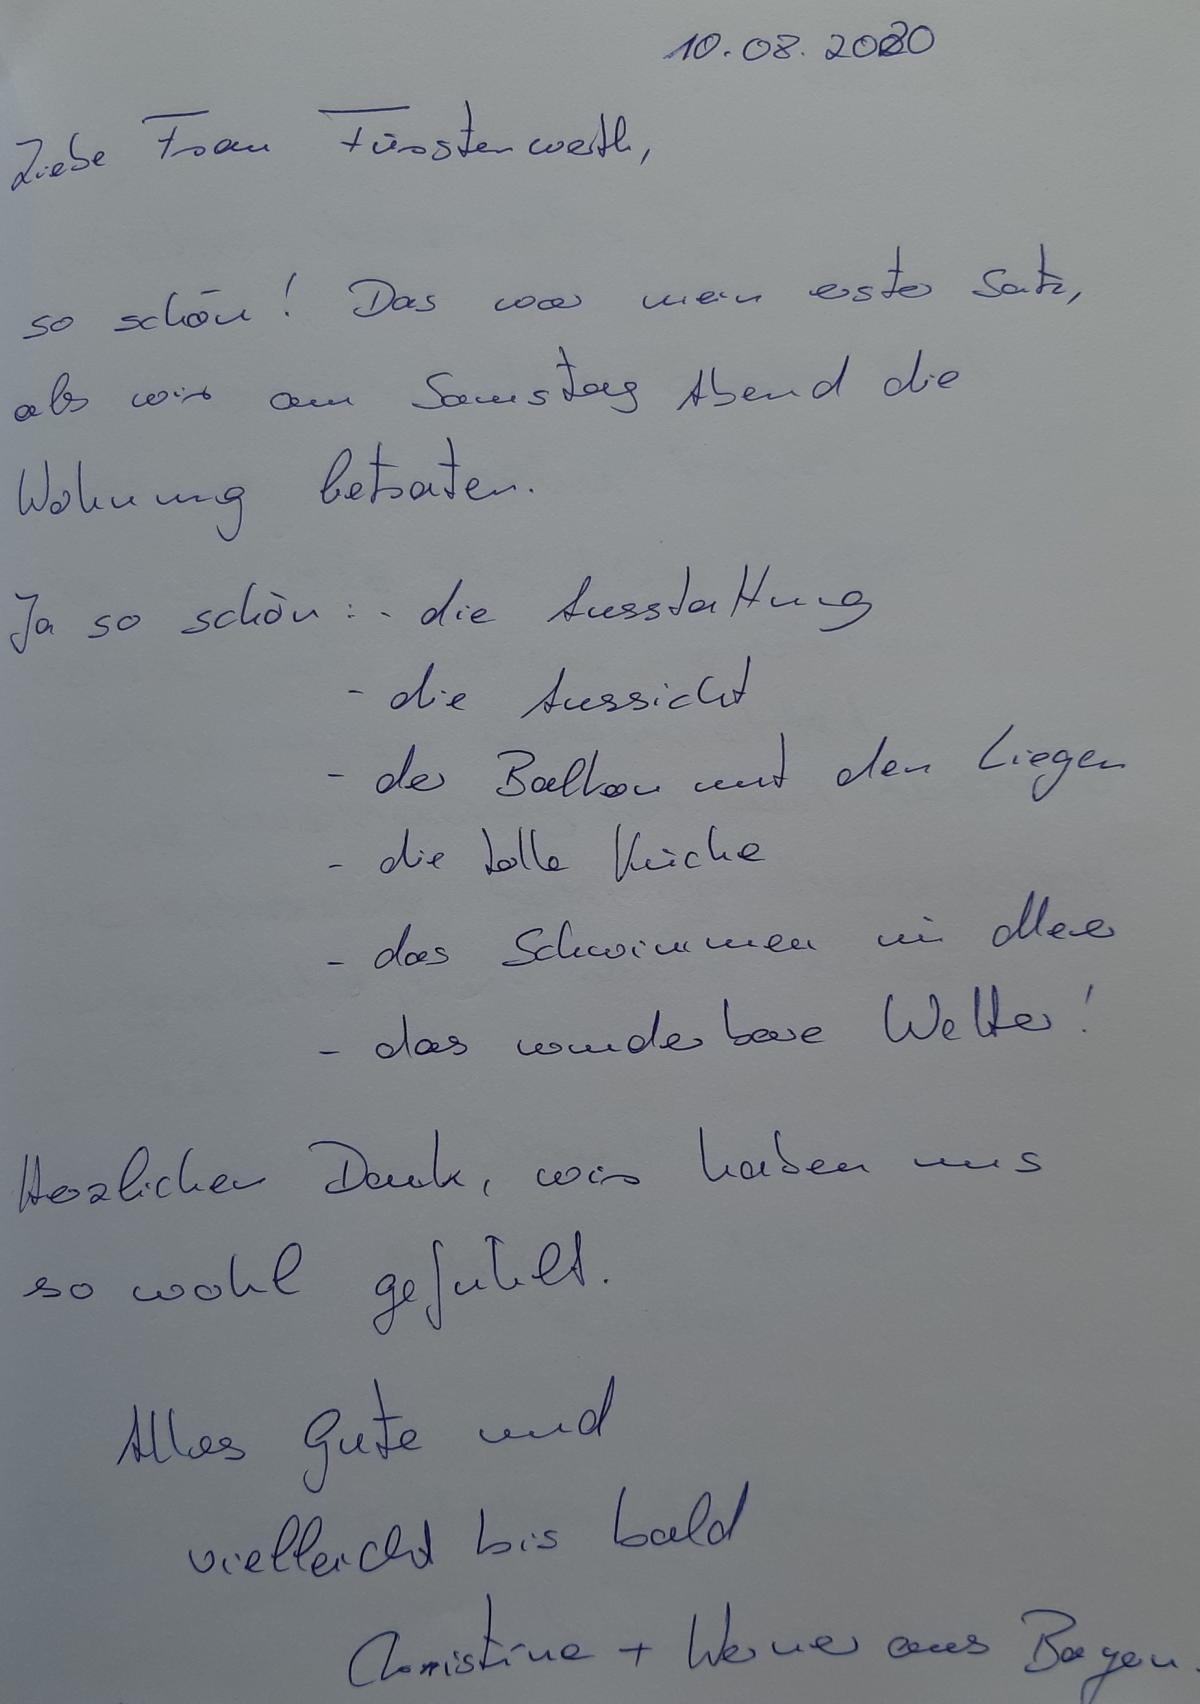 10.08.2020
Liebe Frau Fürstenwerth,
so schön! Das war mein erster Satz,
als wir am Samstag Abend die
Wohnung betraten.
Ja so schön: - die Ausstattung
- die Aussicht
- der Balkon mit den Liegen
- die tolle Küche
- das Schwimmen im Meer
- das wunderbare Wetter!
Herzlichen Dank, wir haben uns
so wohl gefühlt.
Alles Gute und
vielleicht bis bald
Christine + Werner aus Bayern.